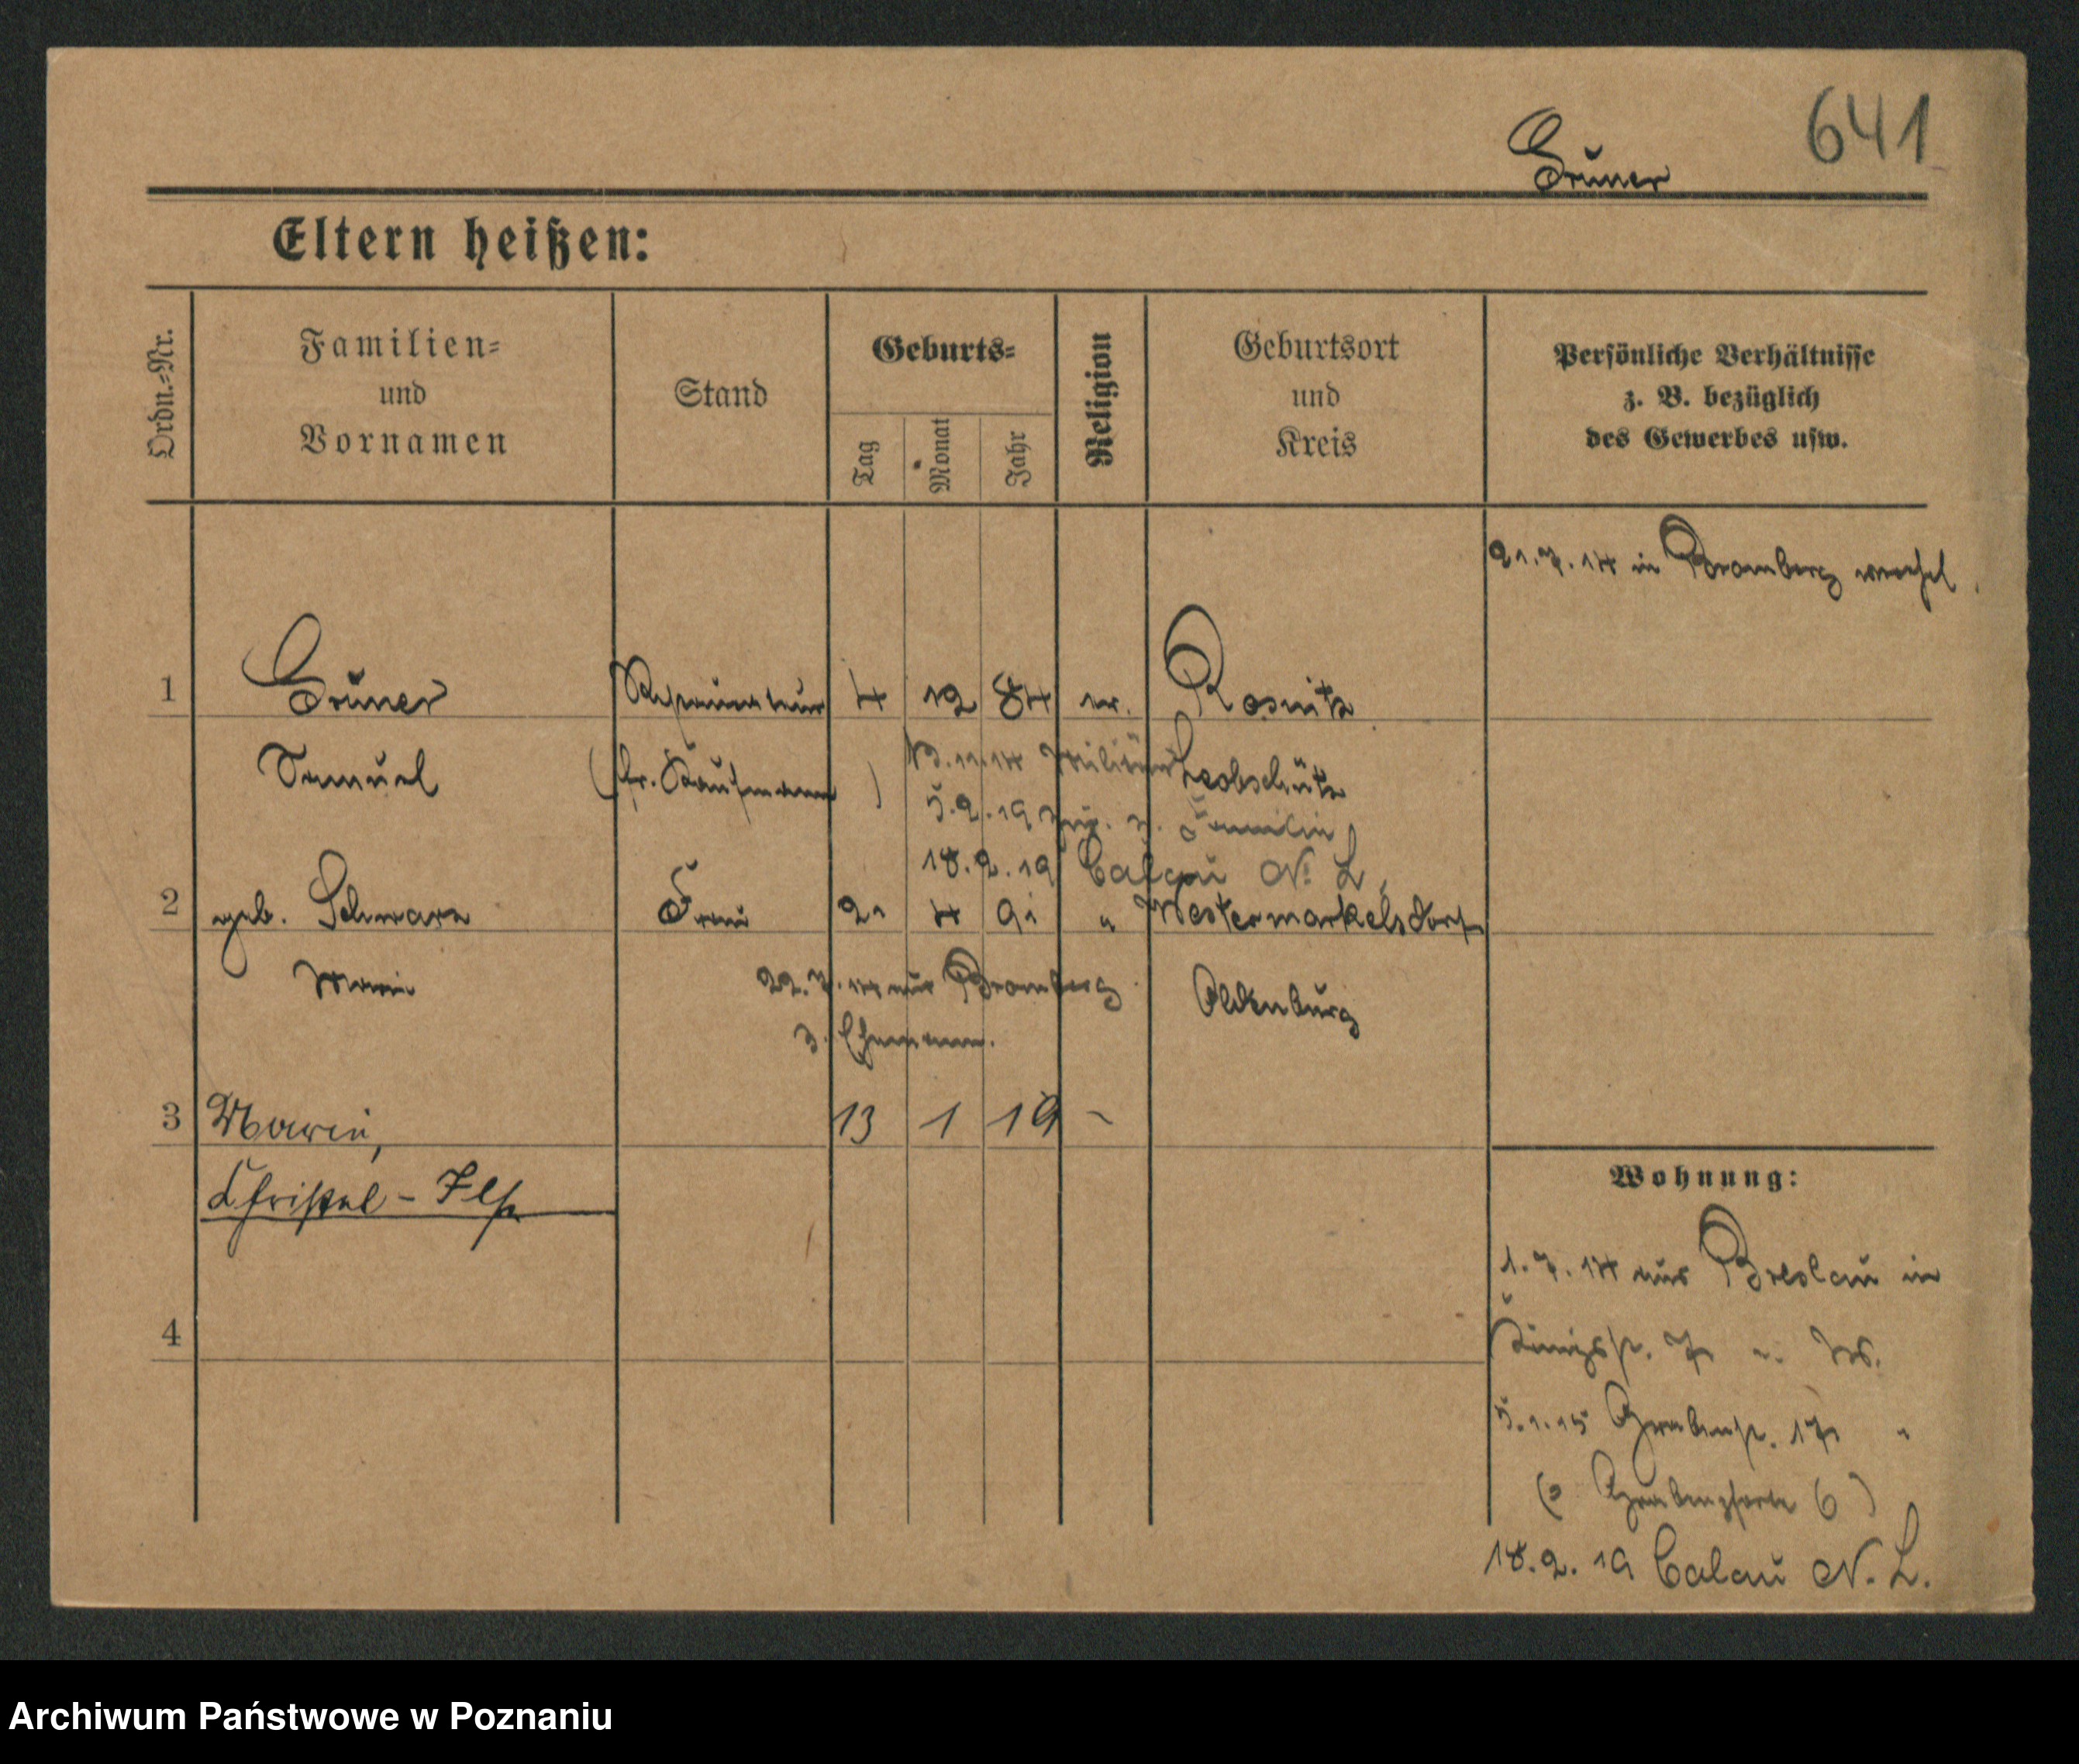 641
Grüner
Eltern heißen:
Ordn.=Nr.
Familien=
und
Vornamen
Stand
Geburts=
Tag
Monat
Jahr
Religion
Geburtsort
und
Kreis
Persönliche Verhältnisse
z. B. bezüglich
des Gewerbes usw.
21.7.14 in Bromberg
1 Grüner 4 12 84 ev. Rosnitz
Samuel (fr. Kaufmann) Leobschütz
5.2.19 z. Familie
18.2.19 Calau N. L.
2 geb. Schwarz Frau 21 4 91 " Westermarkelsdorf
Marie 22.7.14 aus Bromberg Oldenburg
z. Ehemann.
3 Marie, 13 1 19 ~
Christel - Ilse
4
Wohnung:
1.7.14 aus Breslau in
Königspl. 7
5.1.15 Grabenstr. 17 "
(= Grabenpforte 6)
18.2.19 Calau N. L.
Archiwum Państwowe w Poznaniu